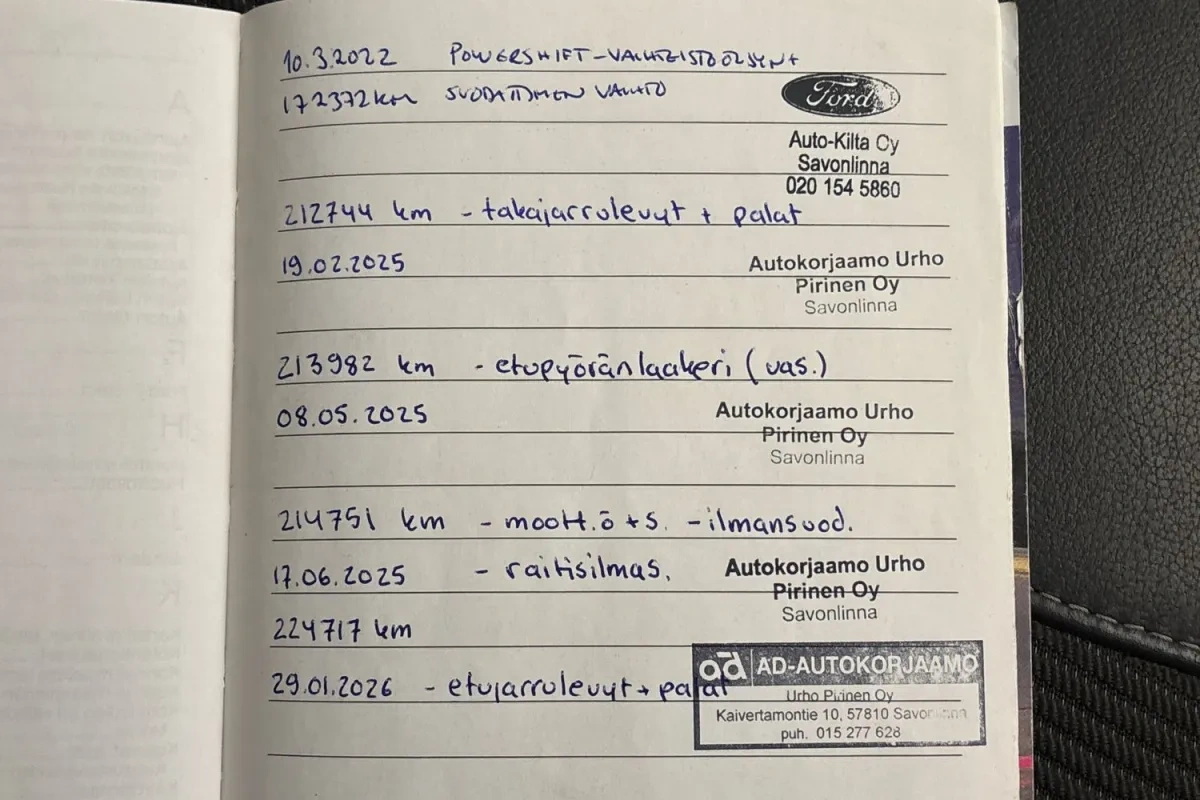 10.3.2022 POWERSHIFT-VAIHTEISTOÖLJYN+
172372 KM SUODATTIMEN VAIHTO
Ford
Auto-Kilta Oy
Savonlinna
020 154 5860
212744 km - takajarrulevyt + palat
19.02.2025
Autokorjaamo Urho
Pirinen Oy
Savonlinna
213982 km - etupyöränlaakeri (vas.)
08.05.2025
Autokorjaamo Urho
Pirinen Oy
Savonlinna
214751 km - moott.ö + s. - ilmansuod.
17.06.2025 - raitisilmas.
Autokorjaamo Urho
Pirinen Oy
Savonlinna
224717 km
29.01.2026 - etujarrulevyt + palat
ad AD-AUTOKORJAAMO
Urho Pirinen Oy
Kaivertamontie 10, 57810 Savonlinna
puh. 015 277 628